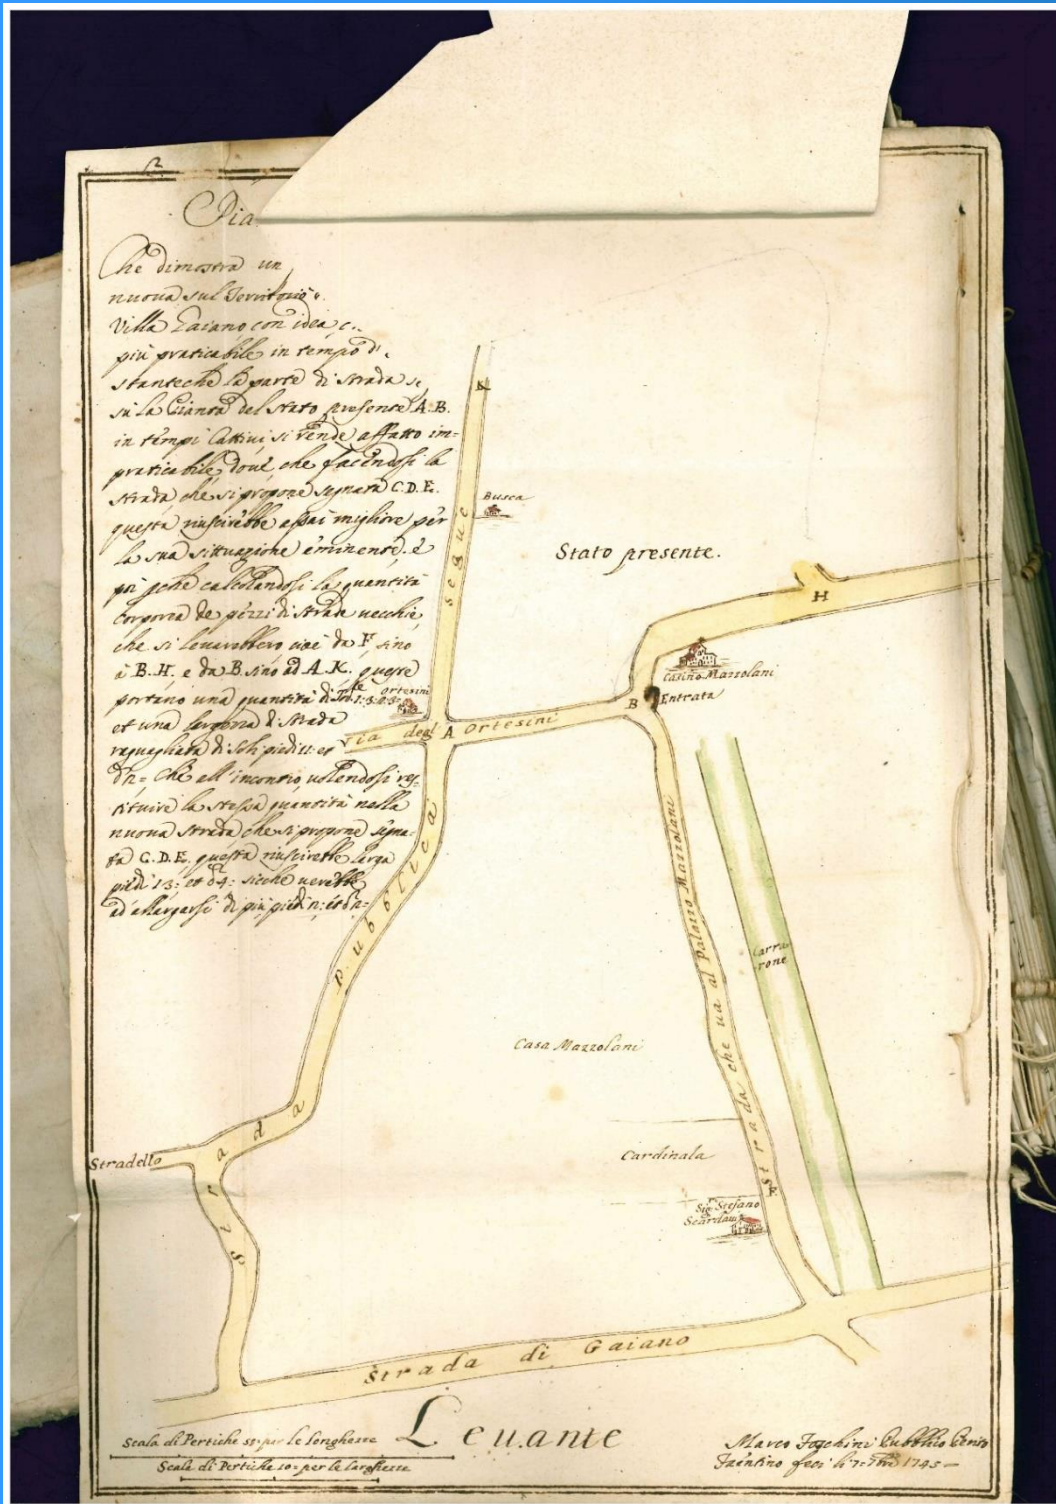 2
Pia
Che dimostra un
nuova sul Territorio
Villa Gaiano con idea c
più praticabile in tempo d
stanteche la parte di strada se
sù la Pianta del stato presente A. B.
in tempi Cattivi si rende affatto im=
praticabile, dove che facendosi la
strada che si propone segnata C. D. E.
questa riuscirebbe assai migliore per
la sua situazione eminente. e
poi perche calcolandosi la quantità
corporea de pezzi di strada vecchie
che si levarebbero cioè da F. sino
à B. H. e da B. sino ad A. K. queste
portano una quantità di
et una largezza di strada
raguagliata di soli piedi 11: et
che all'incontro, volendosi res=
tituire la stessa quantità nella
nuova strada che si propone segna=
ta C. D. E. questa riuscirebbe larga
piedi 13: et siche verebbe
ad allargarsi di più piedi
K
segue
Busca
Stato presente.
H
Casino Mazzolani
Entrata
B
Ortesini
Via degl' Ortesini
A
Strada che va al Palazzo Mazzolani
Carra
rone
Strada pubblica
Casa Mazzolani
Stradello
Cardinala
F
Sig. Stefano
Scardavi
Strada di Gaiano
Levante
Scala di Pertiche 50: per le longhezze
Scala di Pertiche 10= per le larghezze
Marco Foschini Pubblico Perito
Faentino feci li 7: 7bre 1745